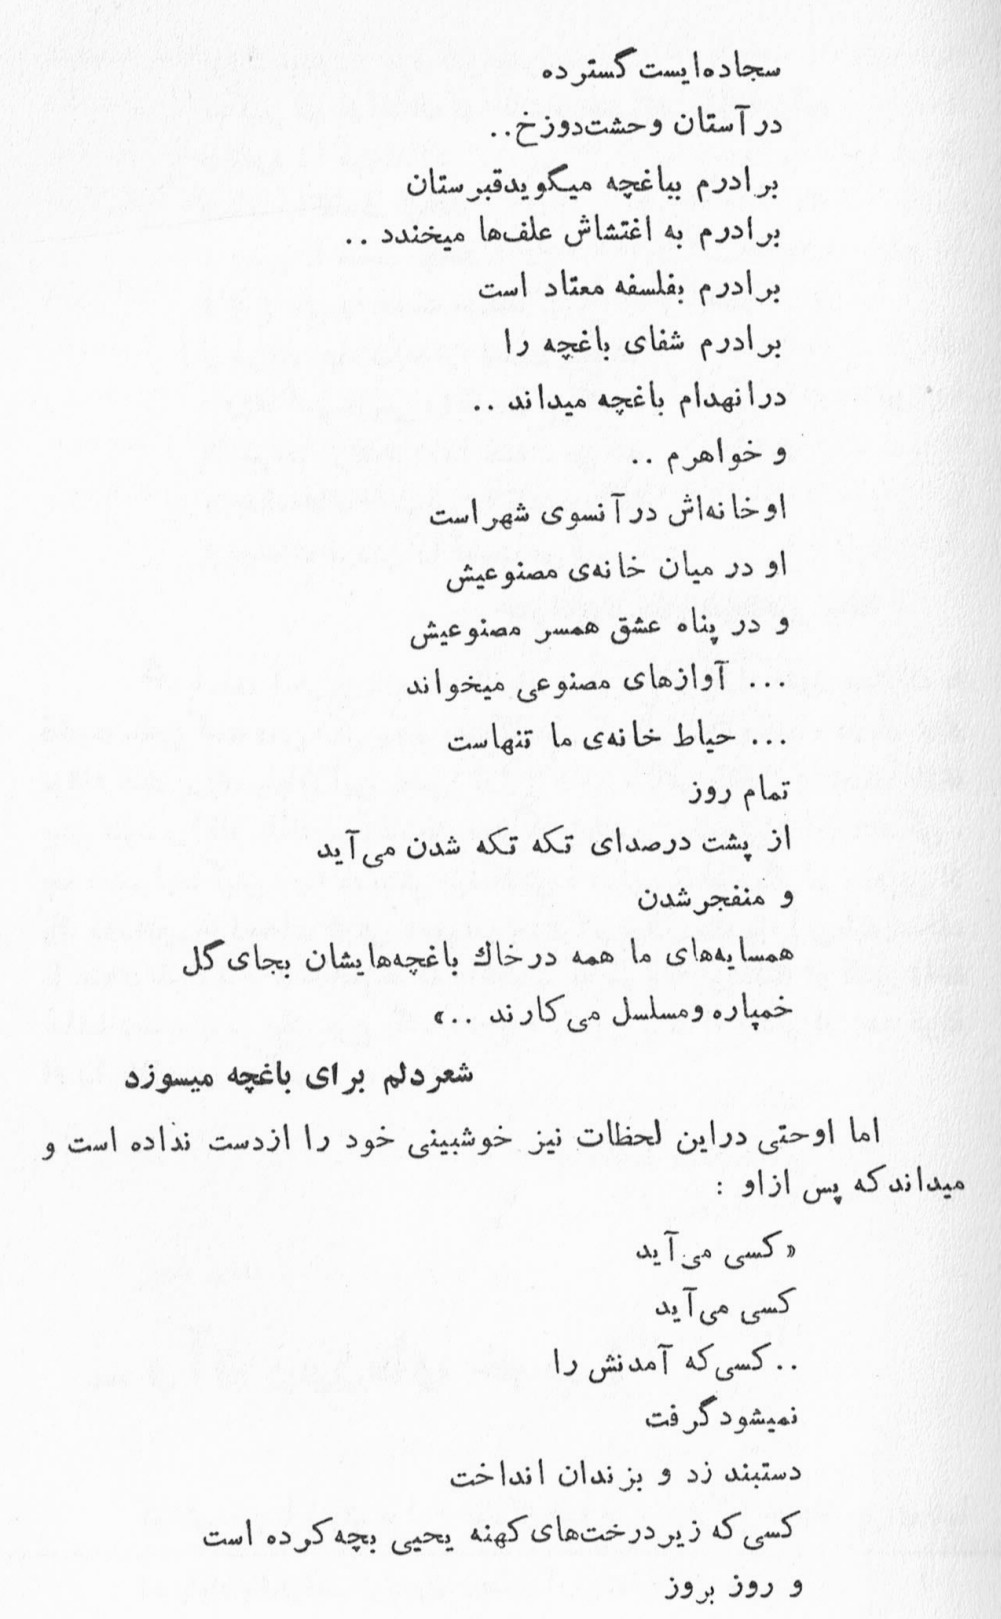 سجاده‌ایست گسترده
در آستان وحشت‌دوزخ..
برادرم بباغچه میگوید قبرستان
برادرم به اغتشاش علف‌ها میخندد ..
برادرم بفلسفه معتاد است
برادرم شفای باغچه را
درانهدام باغچه میداند ..
و خواهرم ..
اوخانه‌اش درآنسوی شهراست
او در میان خانه‌ی مصنوعیش
و در پناه عشق همسر مصنوعیش
... آوازهای مصنوعی میخواند
... حیاط خانه‌ی ما تنهاست
تمام روز
از پشت درصدای تکه تکه شدن می‌آید
و منفجرشدن
همسایه‌های ما همه درخاك باغچه‌هایشان بجای گل
خمپاره ومسلسل می‌کارند ..»
شعردلم برای باغچه میسوزد
اما اوحتی دراین لحظات نیز خوشبینی خود را ازدست نداده است و
میداندکه پس ازاو :
«کسی می‌آید
کسی می‌آید
..کسی‌که آمدنش را
نمیشودگرفت
دستبند زد و بزندان انداخت
کسی‌که زیردرخت‌های کهنه یحیی بچه‌کرده است
و روز بروز